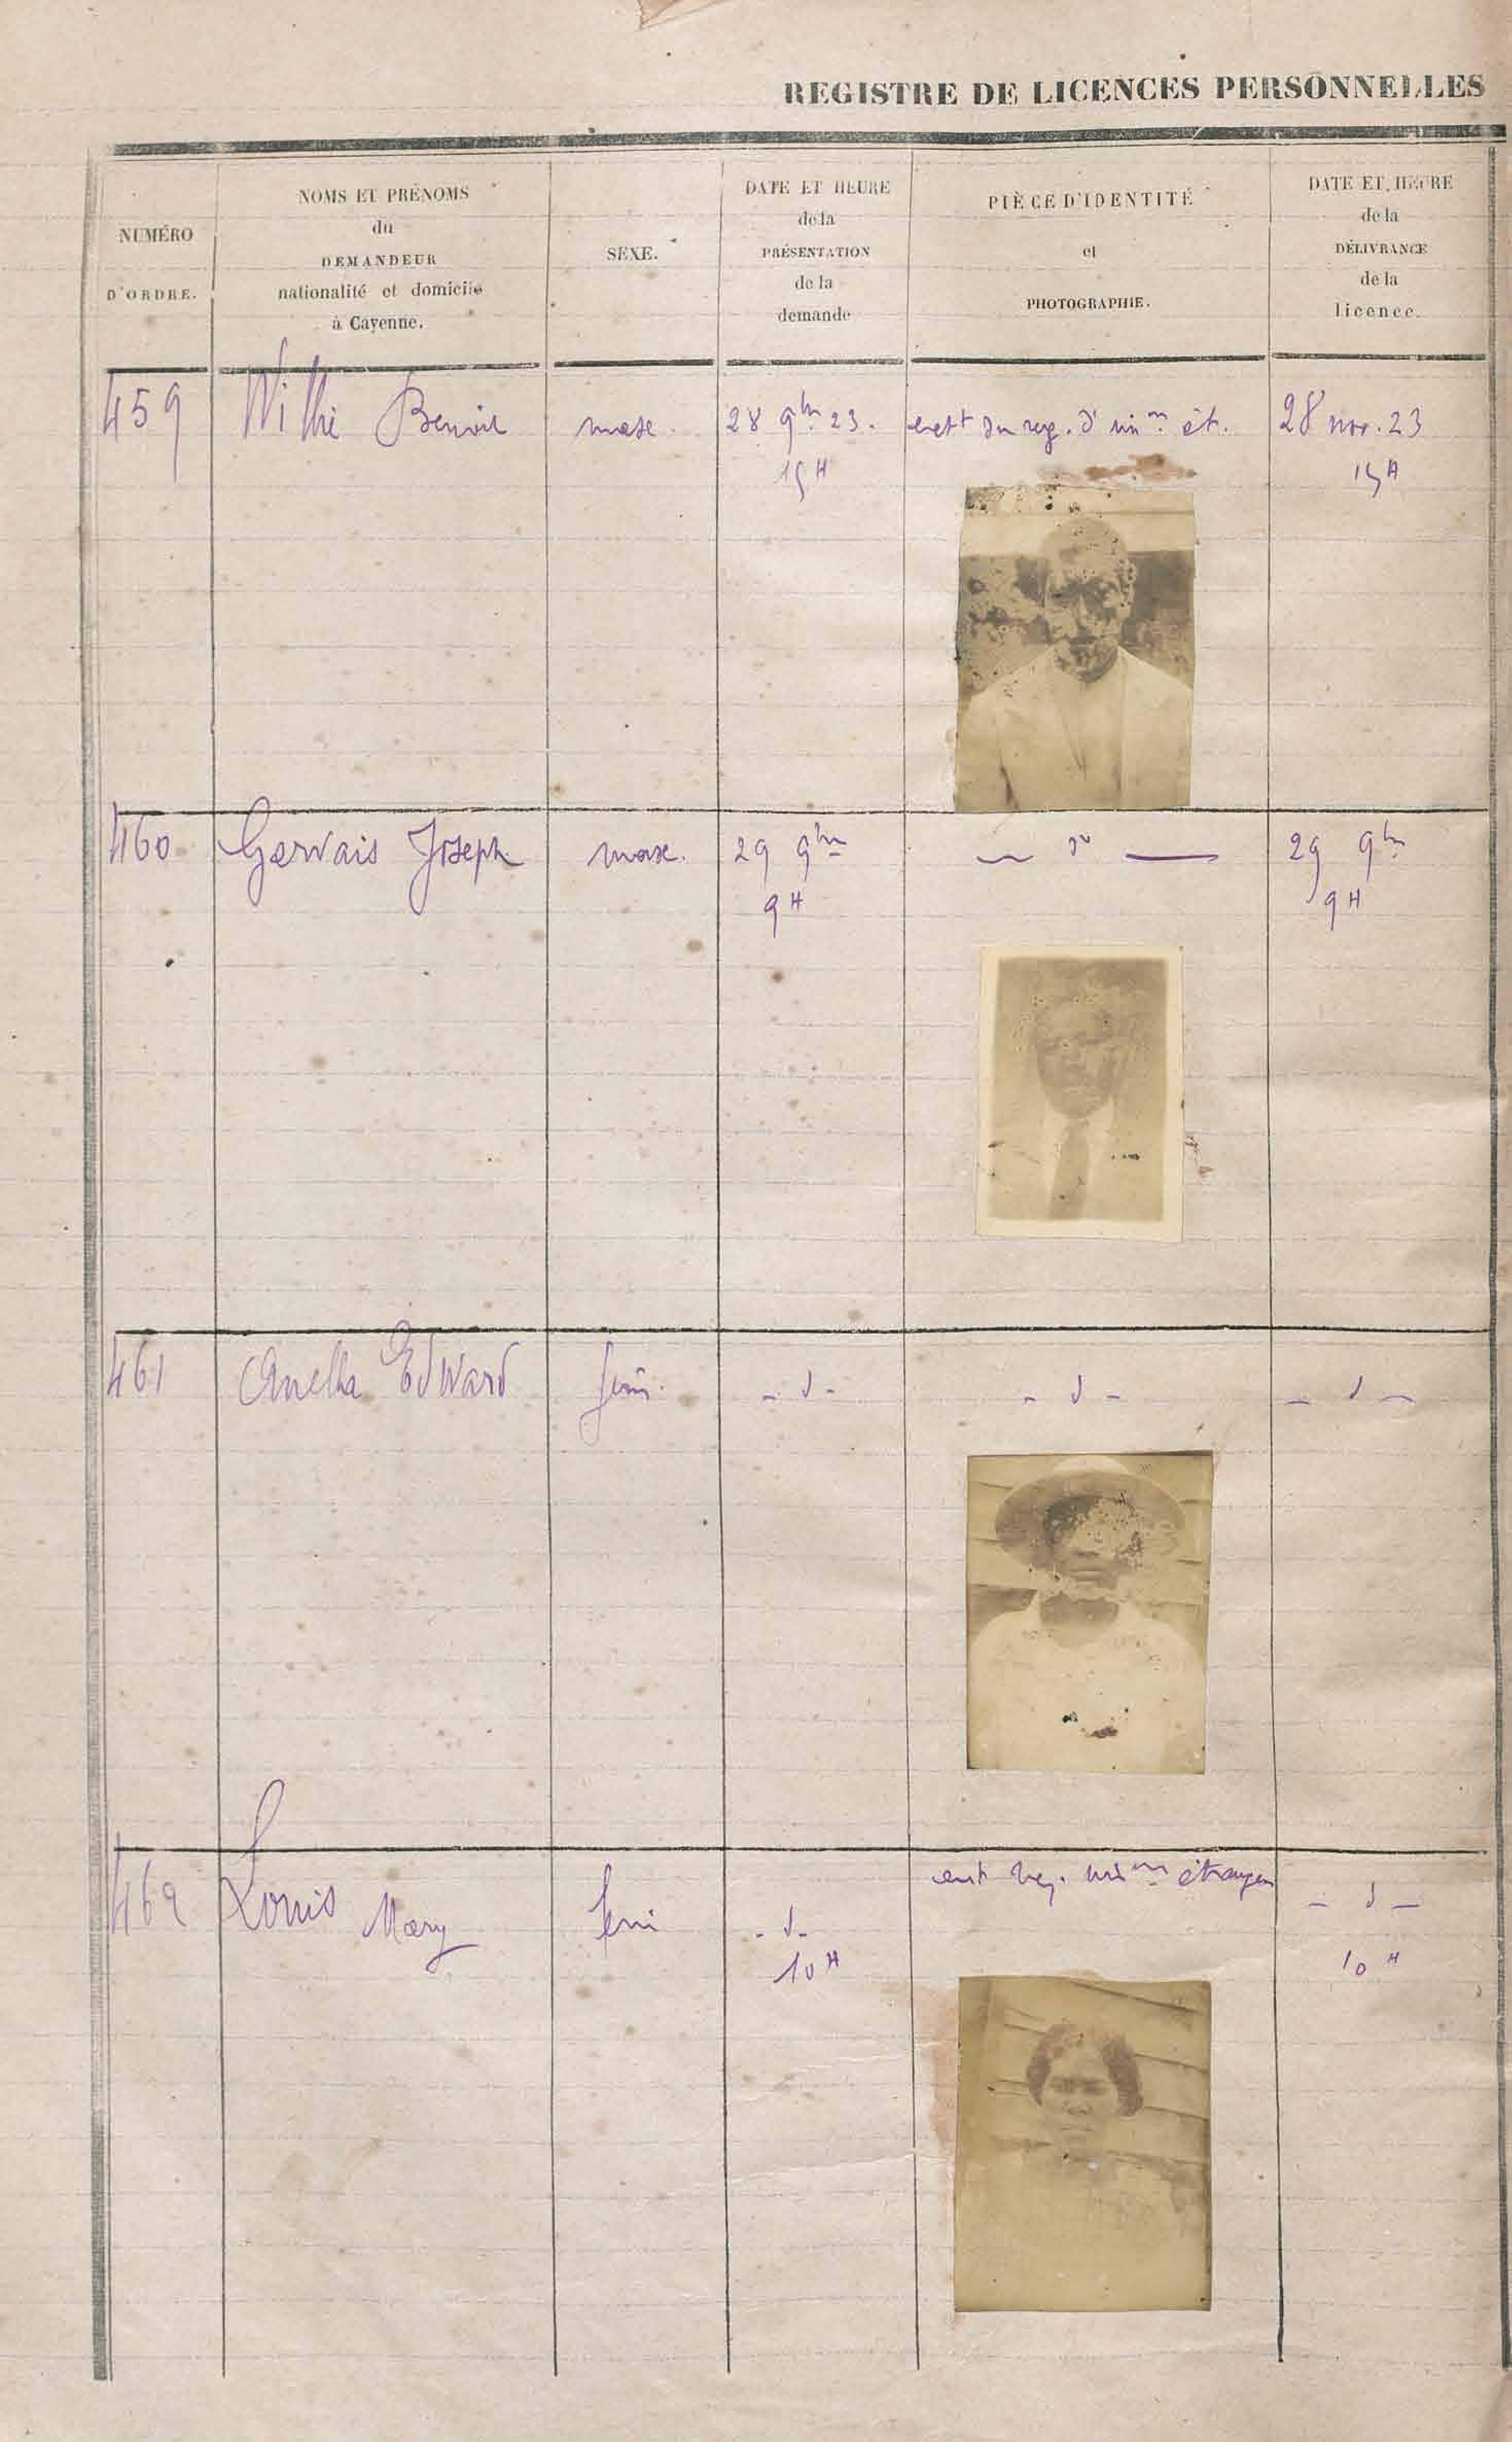 REGISTRE DE LICENCES PERSONNELLES
NUMÉRO
D'ORDRE.
NOMS ET PRÉNOMS
du
DEMANDEUR
nationalité et domicile
à Cayenne.
SEXE.
DATE ET HEURE
de la
PRÉSENTATION
de la
demande
PIÈCE D'IDENTITÉ
et
PHOTOGRAPHIE.
DATE ET HEURE
de la
DÉLIVRANCE
de la
licence.
459 Benoit masc. 28 9bre 23. du reg. d' imon ét. 28 nov. 23
15H 15H
460 Gervais Joseph masc. 29 9bre — do — 29 9bre
9H 9H
461 Edward fém. - d - - d - - d -
462 Louis Mary fém - d - reg. étrangers - d -
10H 10H